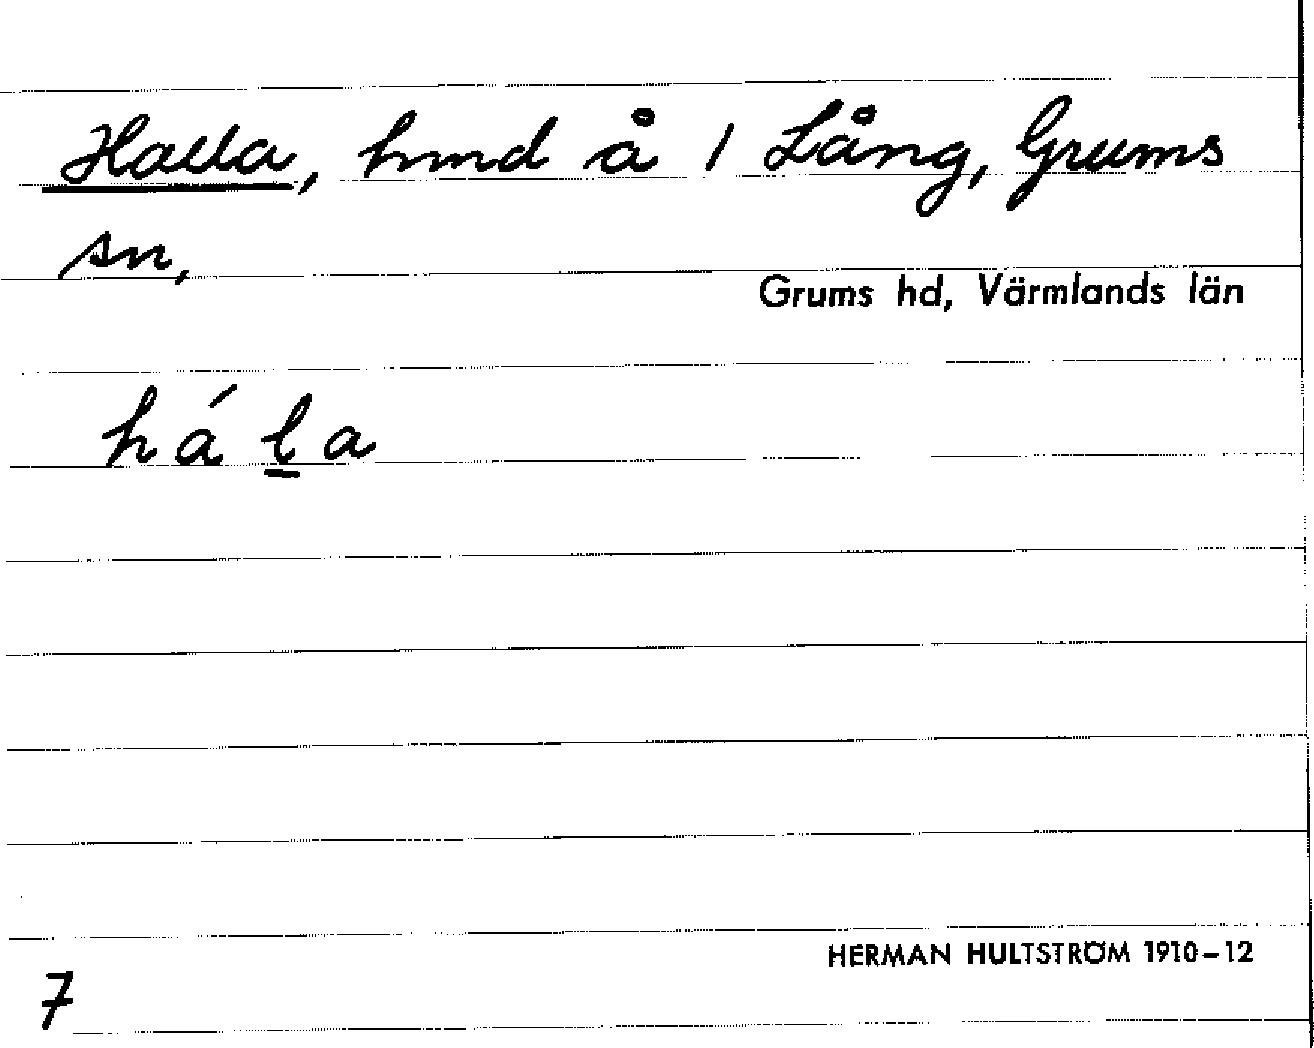 Halla, hmd å 1 Lång, Grums
sn,
Grums hd, Värmlands län
hála
HERMAN HULTSTRÖM 1910–12
7